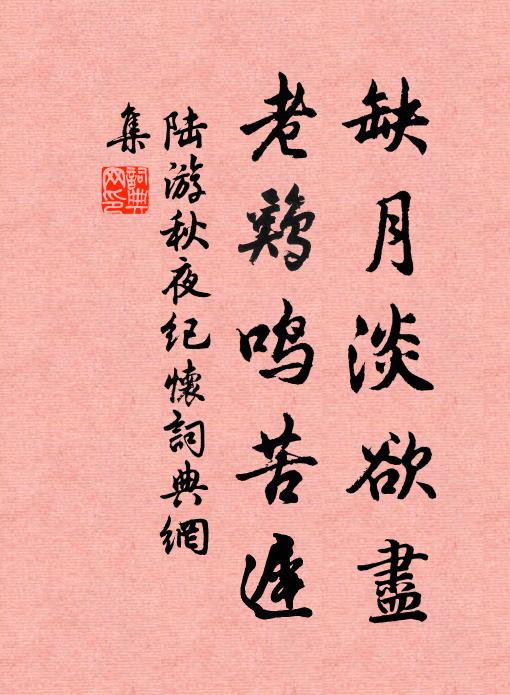 缺月淡欲盡
老鷄鳴苦遲
陆游秋夜纪懷詞典網
集
詞典網印